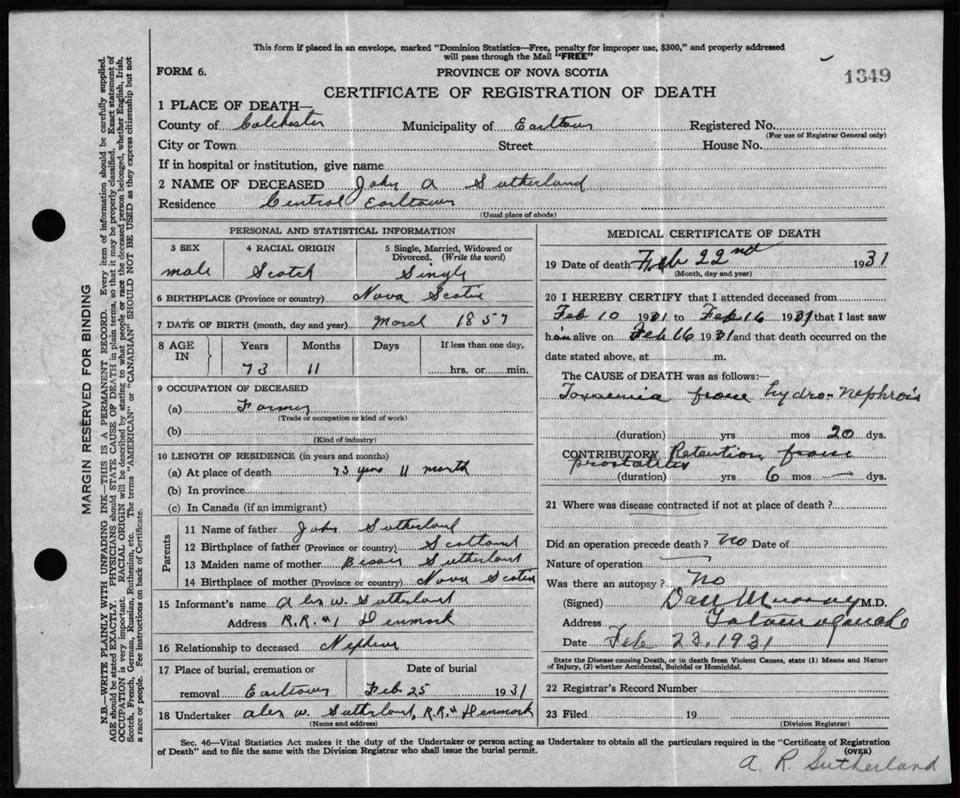 This form if placed in an envelope, marked "Dominion Statistics—Free, penalty for improper use, $300," and properly addressed
will pass through the Mail "FREE"
FORM 6.
PROVINCE OF NOVA SCOTIA
1349
CERTIFICATE OF REGISTRATION OF DEATH
1 PLACE OF DEATH—
County of Colchester Municipality of Earltown Registered No.
(For use of Registrar General only)
City or Town Street House No.
If in hospital or institution, give name
2 NAME OF DECEASED John A Sutherland
Residence Central Earltown
(Usual place of abode)
PERSONAL AND STATISTICAL INFORMATION
3 SEX 4 RACIAL ORIGIN 5 Single, Married, Widowed or Divorced. (Write the word)
male Scotch Single
6 BIRTHPLACE (Province or country) Nova Scotia
7 DATE OF BIRTH (month, day and year) March 1857
8 AGE IN Years Months Days If less than one day,
73 11 hrs. or min.
9 OCCUPATION OF DECEASED
(a) Farmer
(Trade or occupation or kind of work)
(b)
(Kind of industry)
10 LENGTH OF RESIDENCE (in years and months)
(a) At place of death 73 years 11 month
(b) In province
(c) In Canada (if an immigrant)
Parents
11 Name of father John Sutherland
12 Birthplace of father (Province or country) Scotland
13 Maiden name of mother Sutherland
14 Birthplace of mother (Province or country) Nova Scotia
15 Informant's name Alex W. Sutherland
Address R.R. #1 Denmark
16 Relationship to deceased Nephew
17 Place of burial, cremation or removal Date of burial
Earltown Feb 25 1931
18 Undertaker Alex W. Sutherland, R.R.# Denmark
(Name and address)
MEDICAL CERTIFICATE OF DEATH
19 Date of death Feb 22nd 1931
(Month, day and year)
20 I HEREBY CERTIFY that I attended deceased from
Feb 10 1931 to Feb 16 1931 that I last saw
him alive on Feb 16 1931 and that death occurred on the
date stated above, at m.
The CAUSE OF DEATH was as follows:—
Toxaemia from hydro-nephrosis
(duration) yrs mos 20 dys.
CONTRIBUTORY Retention from
prostatitis
(duration) yrs 6 mos — dys.
21 Where was disease contracted if not at place of death?
Did an operation precede death? No Date of
Nature of operation
Was there an autopsy? No
(Signed) Dan Murray M.D.
Address Tatamagouche
Date Feb 23, 1931
State the Disease causing Death, or in death from Violent Causes, state (1) Means and Nature
of Injury, (2) whether Accidental, Suicidal or Homicidal.
22 Registrar's Record Number
23 Filed 19
(Division Registrar)
Sec. 46—Vital Statistics Act makes it the duty of the Undertaker or person acting as Undertaker to obtain all the particulars required in the "Certificate of Registration
of Death" and to file the same with the Division Registrar who shall issue the burial permit. (OVER)
A. R. Sutherland
MARGIN RESERVED FOR BINDING
N.B.—WRITE PLAINLY WITH UNFADING INK—THIS IS A PERMANENT RECORD. Every item of information should be carefully supplied.
AGE should be stated EXACTLY. PHYSICIANS should STATE CAUSE OF DEATH in plain terms, so that it may be properly classified. Exact statement of
OCCUPATION is very important. RACIAL ORIGIN will be described by stating to what people or race the deceased person belonged, whether English, Irish,
Scotch, French, German, Russian, Ruthenian, etc. The terms "AMERICAN" or "CANADIAN" SHOULD NOT BE USED as they express citizenship but not
a race or people. See instructions on back of Certificate.